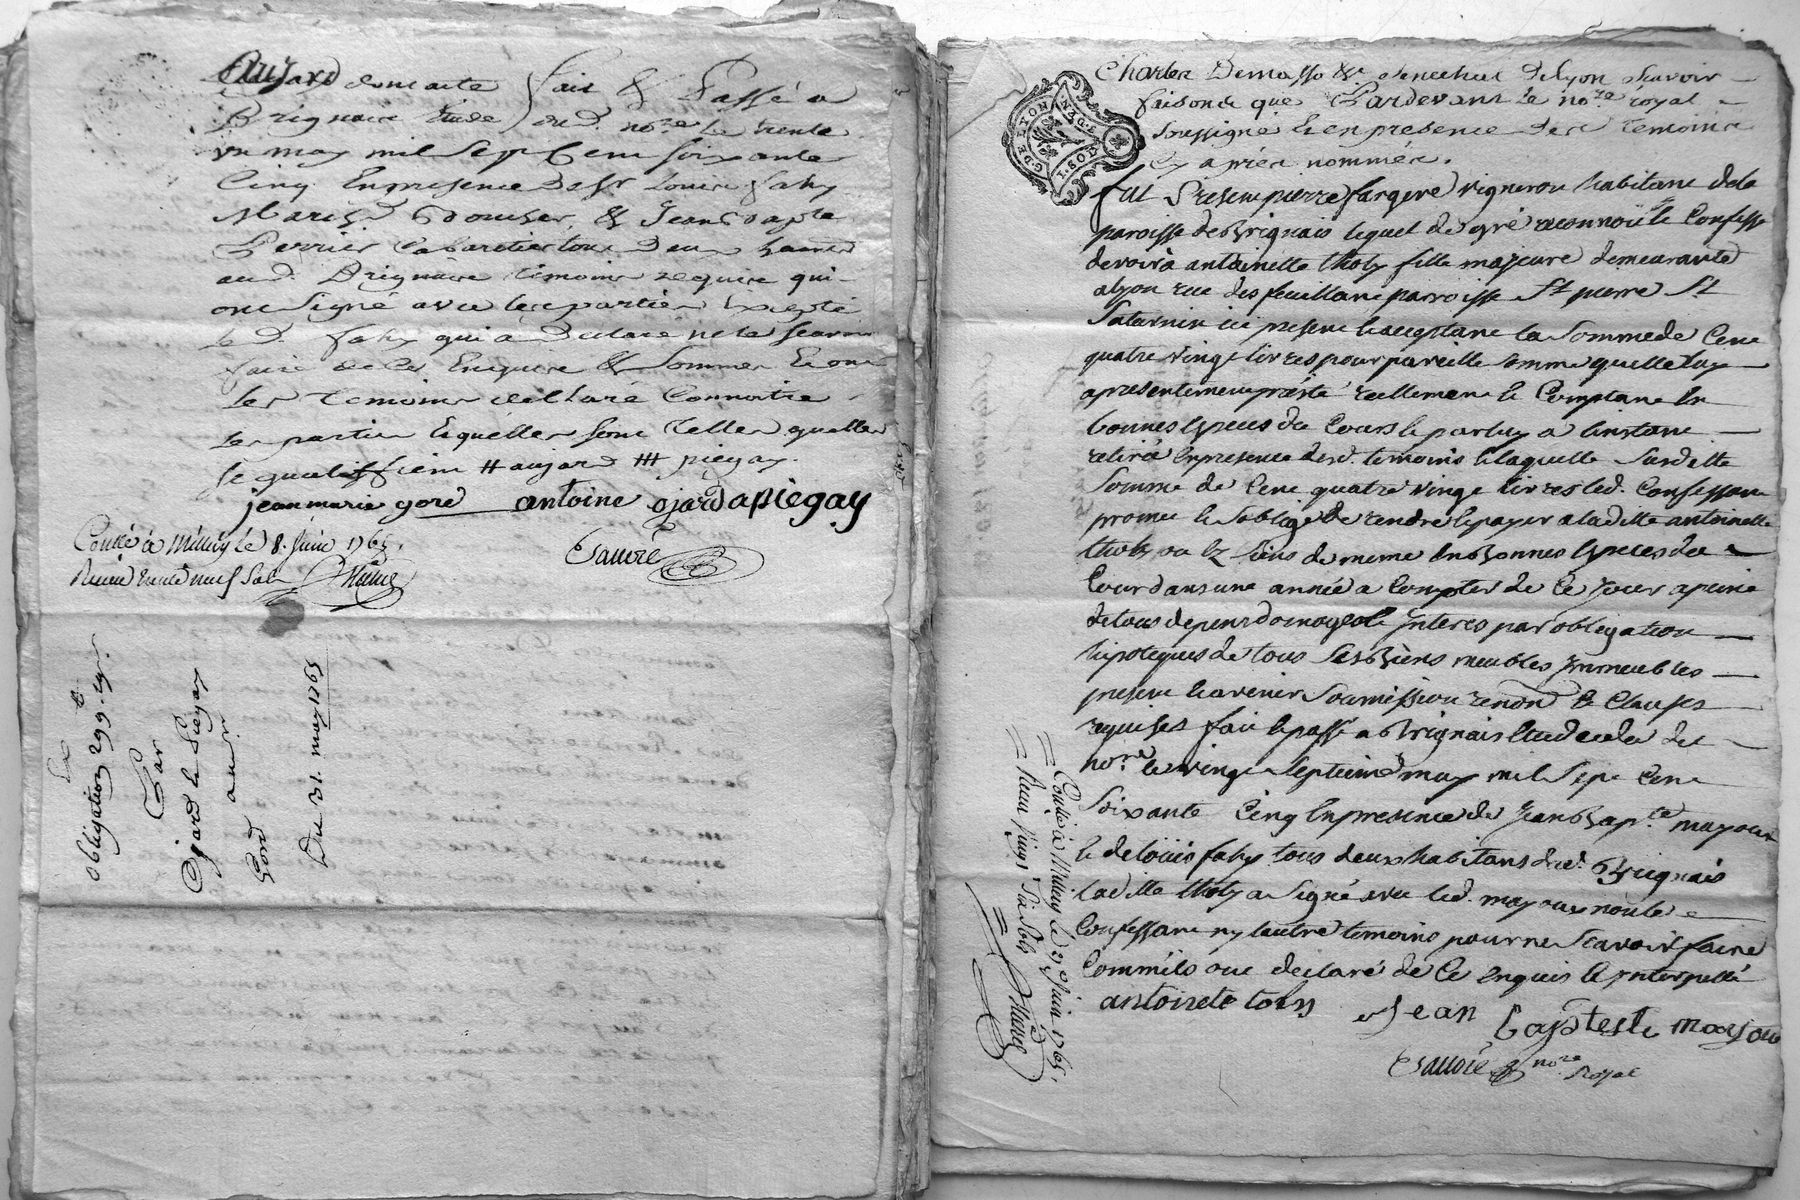 dont acte fait & Passé a
Brignais Etude dud. no.re Le trente
un may mil Sept Cent soixante
Cinq En presence de Sr Louis fahy
Marchd & Jean Bapte
Perrier Cabaretier tous deux
aud. Brignais temoins requis qui
ont signé avec les parties Excepté
Led. fahy qui a Declaré ne le scavoir
faire de Ce Enquis & Sommé Et ont
Les temoins declaré Connoitre
Les parties Lesquelles sont telles quelles
se qualiffient # aujard # piegay.
jean marie gord antoine ojard a piegay
Conllé a Millery le 8. Juin 1765.
Reçu neuf Sols
La
obligation 299.
Par
Ojard & Piegay
a mr
Gord
Du 31. may 1765
Charles Demasso &c. senechal De Lyon scavoir
faisons que Pardevant Le no.re royal
soussigné & en presence des temoins
cy après nommés.
G. DE LYON
fut Present pierre fargere vigneron habitant de la
paroisse de Brignais lequel de gré reconnoit & Confesse
devoir a antoinette tholy fille majeure demeurante
a lyon rue des feuillans parroisse St pierre St
Saturnin icy presente & acceptante la Somme de Cent
quatre vingt livres pour pareille somme quelle luy
a presentement presté reellement & Comptant En
bonnes Especes du Cours & par luy a linstant
retiré En presence desd. temoins & laquelle Susditte
Somme de Cent quatre vingt livres led. Confessant
promet & soblige de rendre & payer a laditte antoinette
tholy ou Ez siens de meme En Bonnes Especes du
Cour dans une année a Compter de Ce Jour a peine
de tous depens domages & Interes par obligation
hipoteques de tous Ses Biens meubles Immeubles
present & avenir Soumission renond & Clauses
requises fait & passé a Brignais Etude du dit
no.re le vingt Septieme may mil Sept Cent
Soixante Cinq En presence de Jean Bap.te mayoux
& de Loüis fahy tous deux habitans dud. Brignais
laditte tholy a Signé avec led. mayoux non le
Confessant ny lautre temoins pour ne Scavoir faire
Comm'ils ont declaré de Ce Enquis & Interpellé
antoinete toly Jean Baptiste mayou
no.re Royal
Conllé a Millery le 2 Juin 1765.